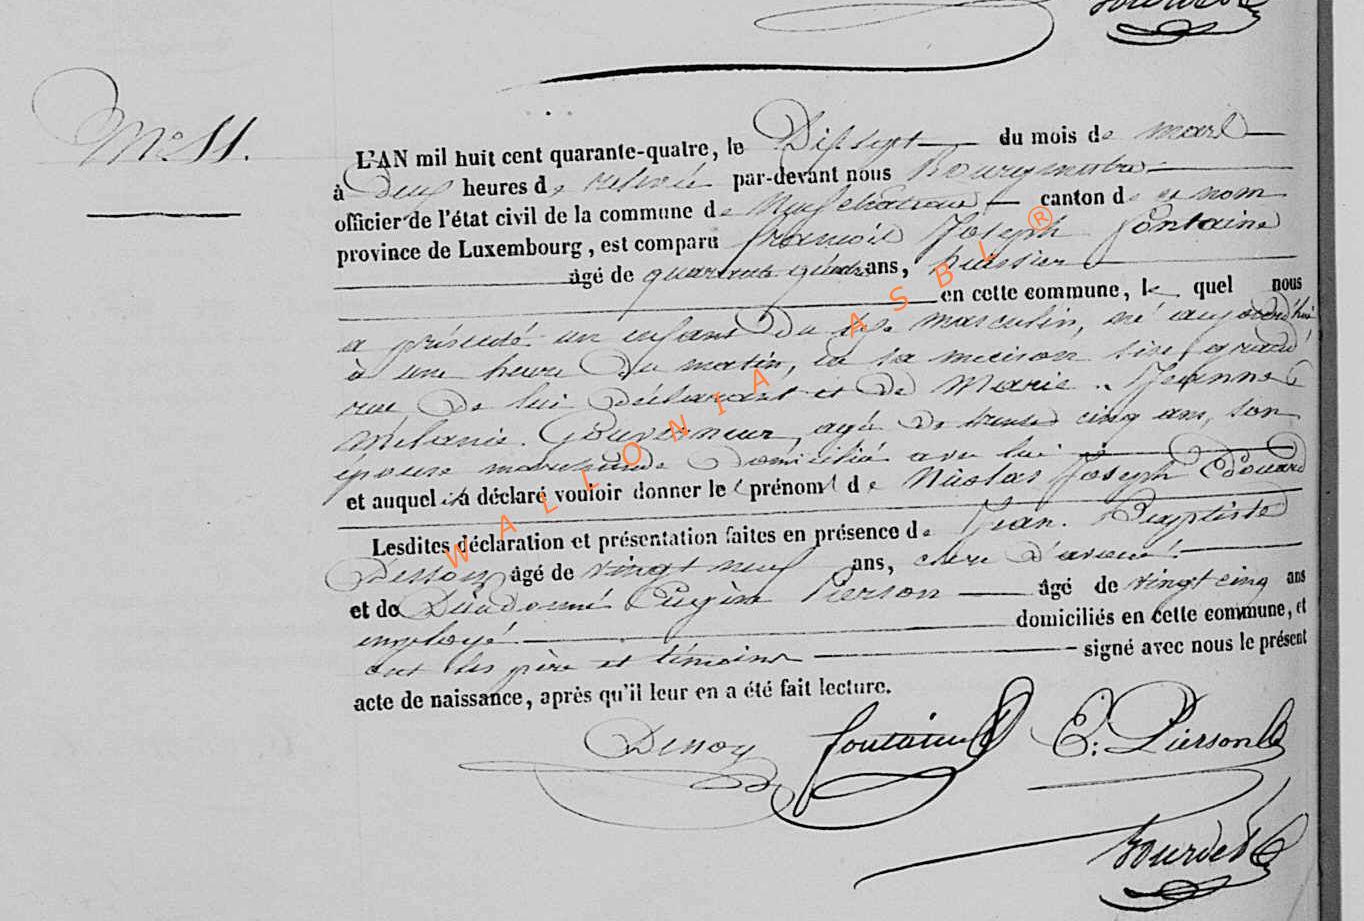 N° 11.
L'AN mil huit cent quarante-quatre, le Dixsept du mois de mars
à Deux heures de relevée par-devant nous Bourgmestre
officier de l'état civil de la commune de Neufchateau canton de ce nom
province de Luxembourg, est comparu françois Joseph fontaine
âgé de quarante ans, huissier
en cette commune, le quel nous
a présenté un enfant du sexe masculin, né aujourd'hui
à une heure du matin, en sa maison sise grand
rue de lui déclarant et de Marie Jeanne
Mélanie Gouverneur, agée de trente cinq ans, son
épouse marchande domiciliée avec lui
et auquel il a déclaré vouloir donner les prénoms de Nicolas Joseph Edouard
Lesdites déclaration et présentation faites en présence de Jean Baptiste
Denoy âgé de vingt neuf ans, clerc d'avoué
et de Dieudonné Eugène Pierson âgé de vingt cinq ans
employé domiciliés en cette commune, et
ont les père et témoins signé avec nous le présent
acte de naissance, après qu'il leur en a été fait lecture.
Denoy fontaine E. Pierson
WALLONIA ASBL ®